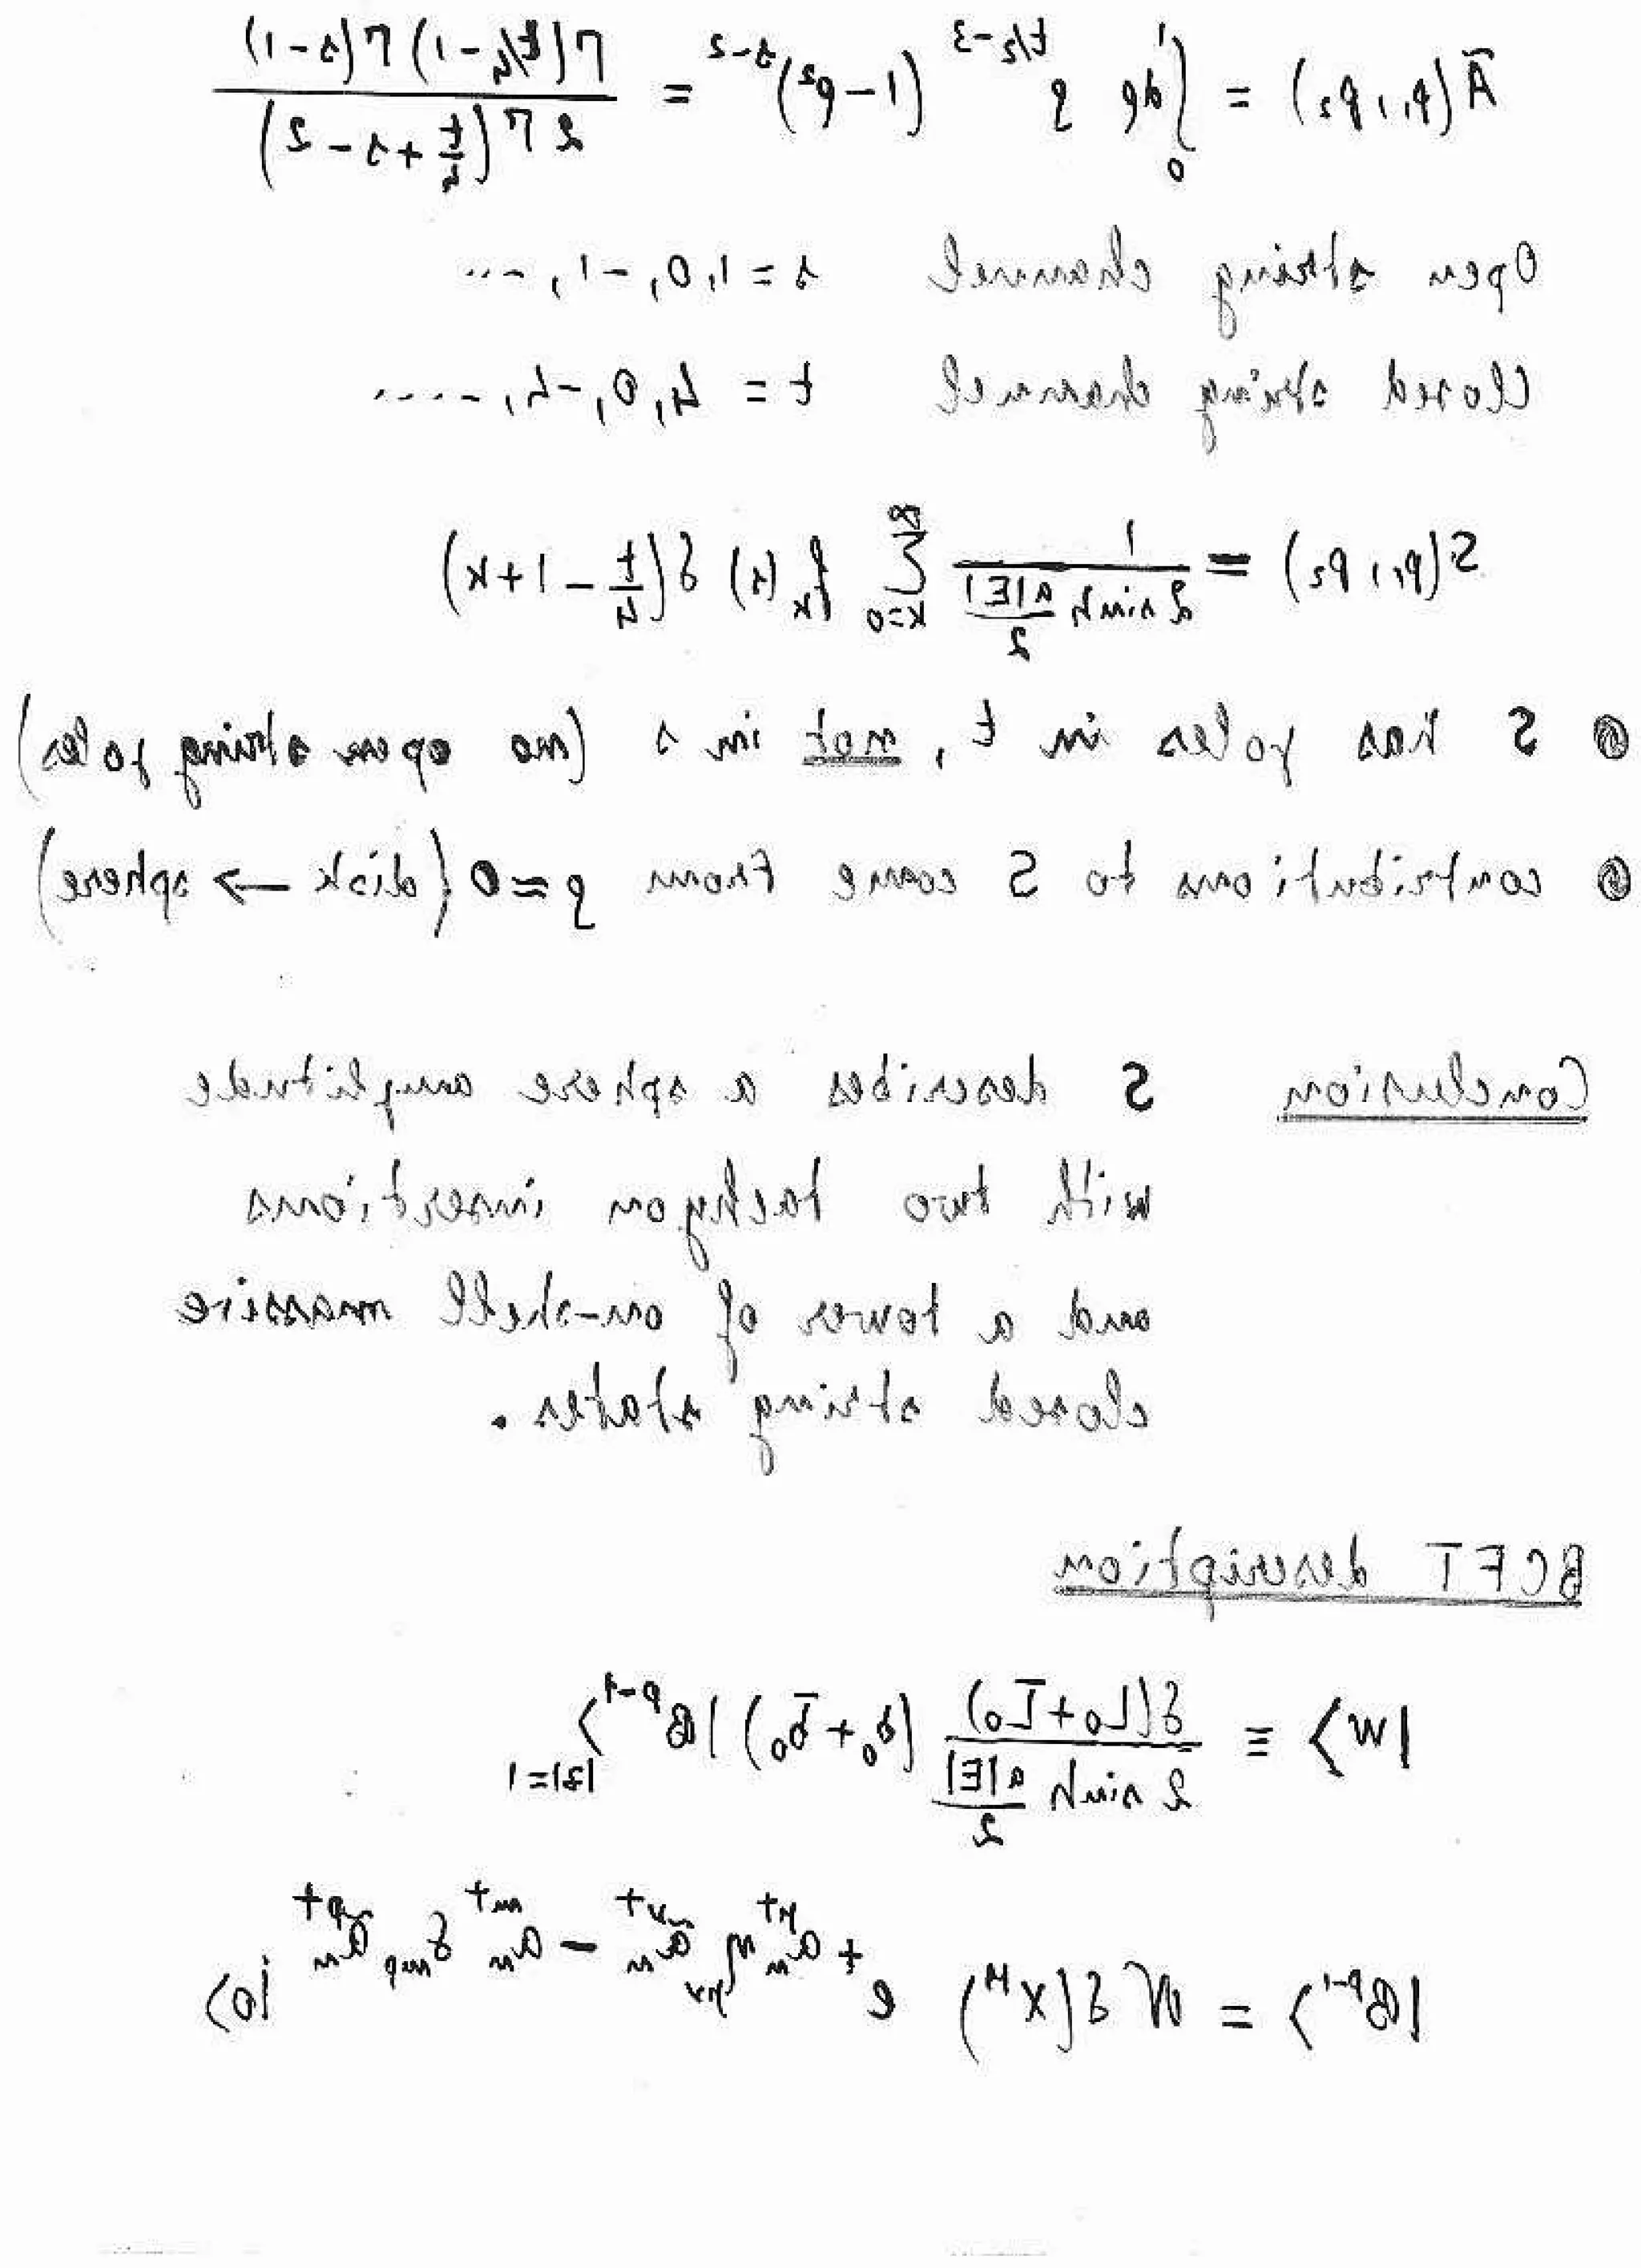 Ã(p₁, p₂) = ∫₀¹ dρ ρ^{t/2-3} (1-ρ²)^{s-2} = Γ(t/4-1) Γ(s-1) / 2 Γ(t/4+s-2)
Open string channel s = 1, 0, -1, ...
Closed string channel t = 4, 0, -4, ....
S(p₁, p₂) = 1 / (2 sinh a|E|/2) ∑_{k=0}^∞ f_k(s) δ(t/4 - 1 + k)
S has poles in t, not in s (no open string poles)
contributions to S come from ρ=0 (disk → sphere)
Conclusion S describes a sphere amplitude
with two tachyon insertions
and a tower of on-shell massive
closed string states.
BCFT description
|W⟩ ≡ δ(L₀+L̄₀) / (2 sinh a|E|/2) (b₀ + b̄₀) |B^{p-1}⟩_{|z|=1}
|B^{p-1}⟩ = N δ(X^M) e^{+ a_n^{μ†} η_{μν} ã_n^{ν†} - a_n^{m†} δ_{mp} ã_n^{p†}} |0⟩